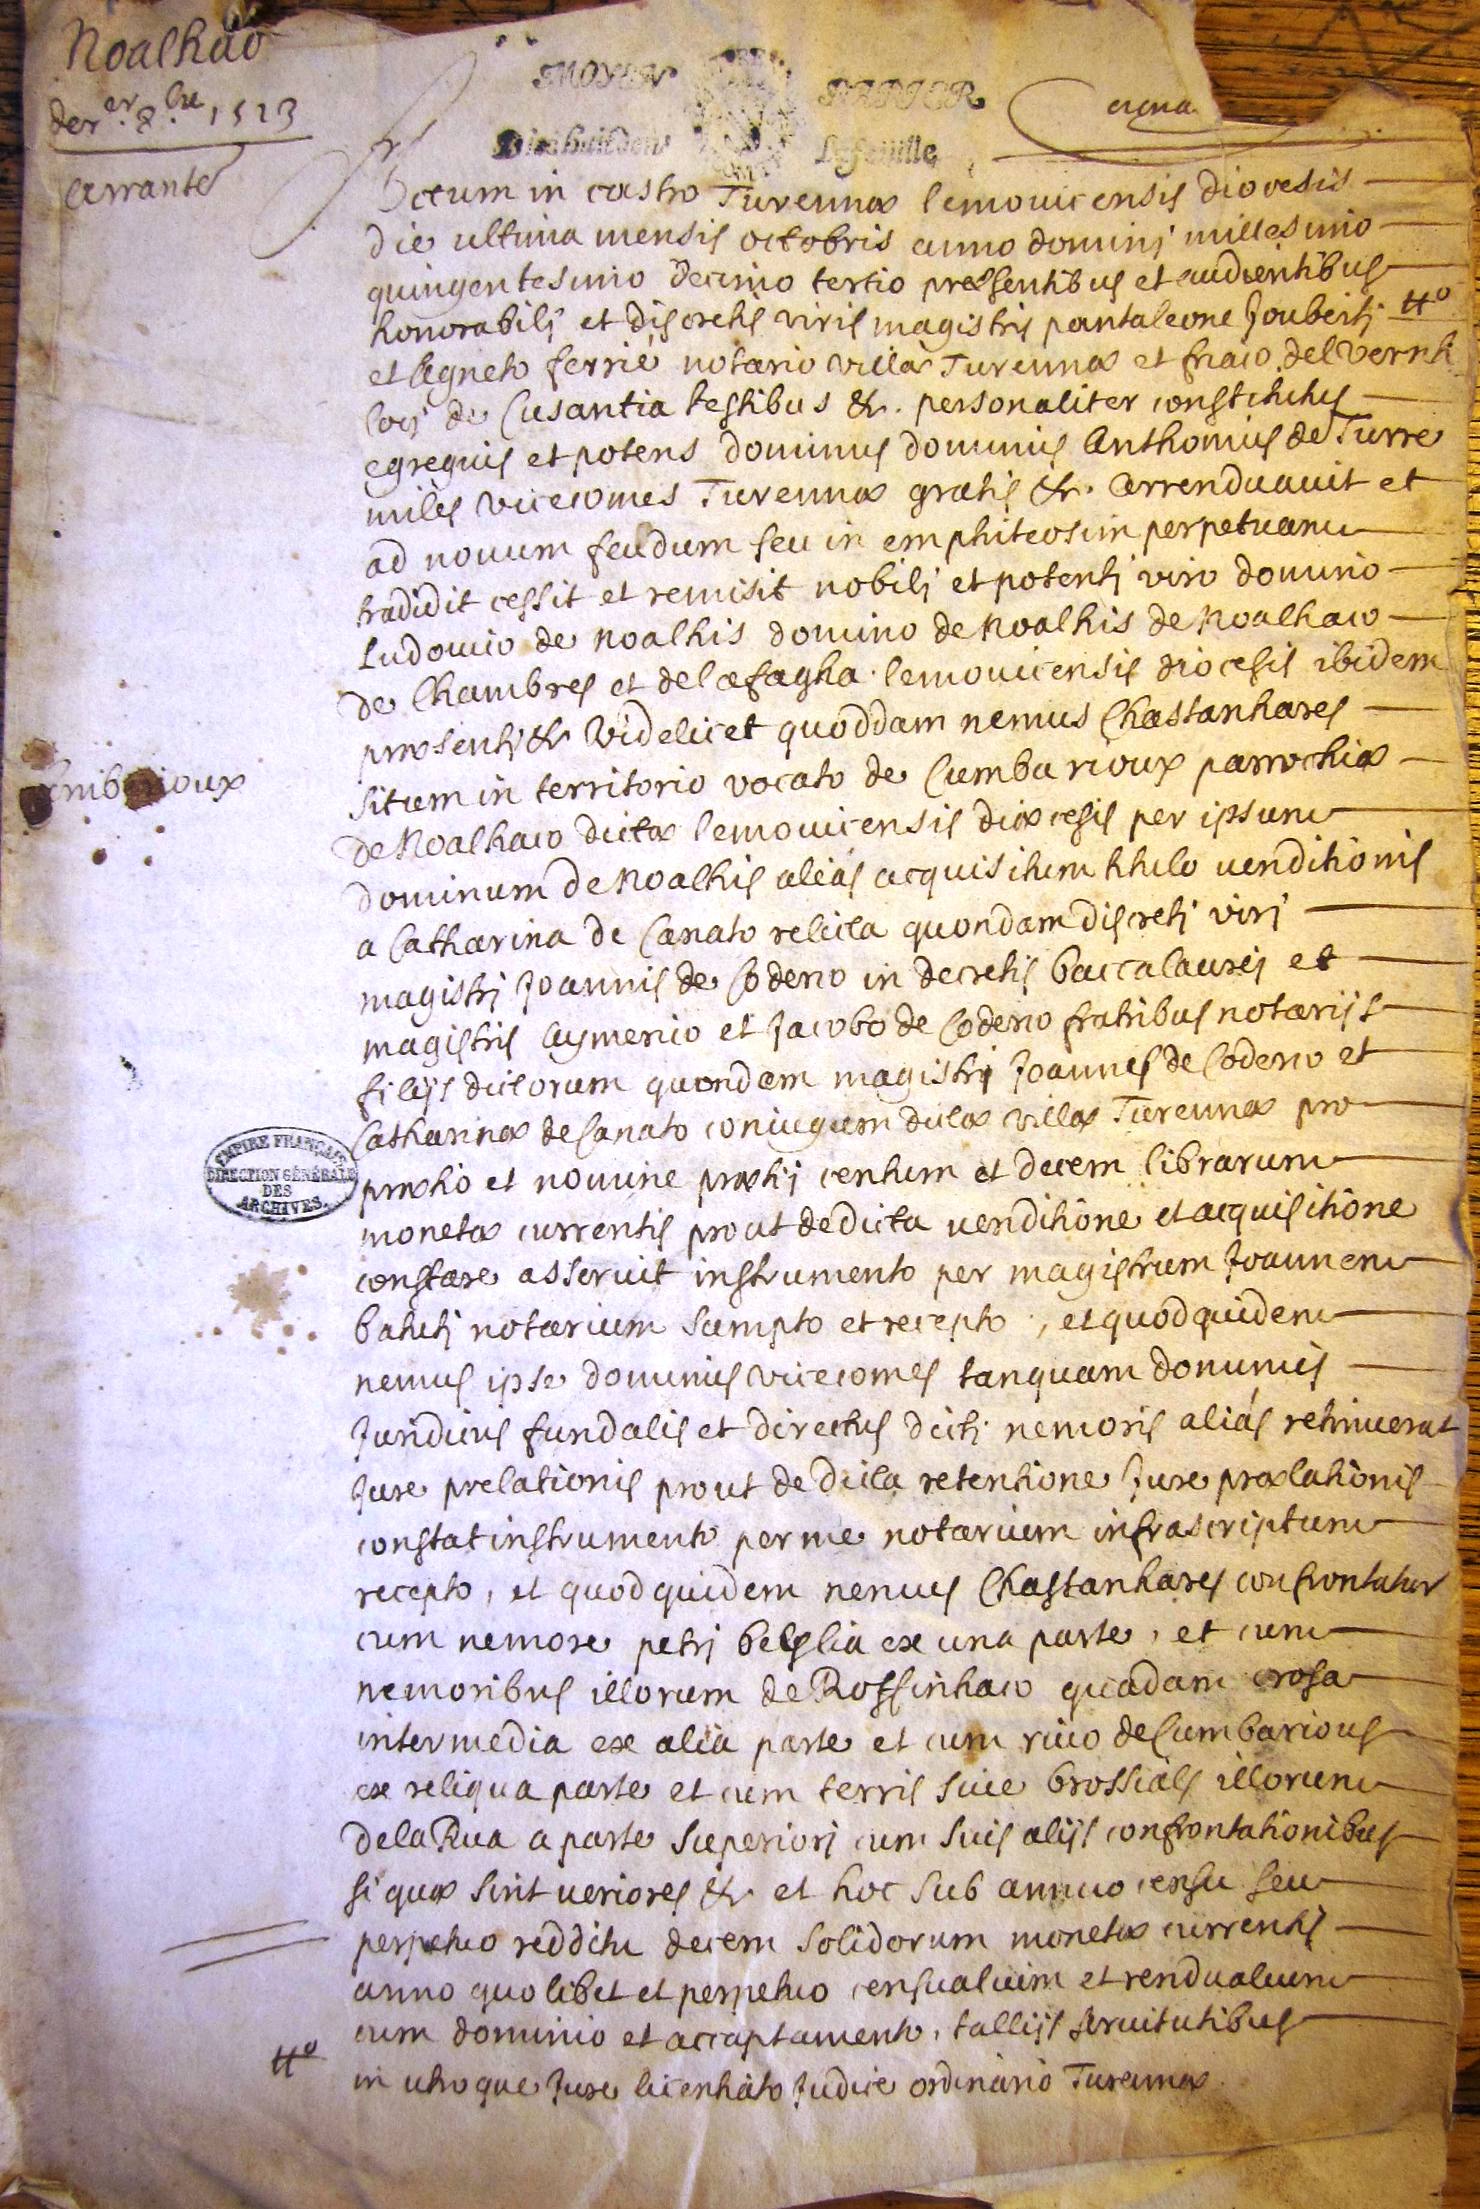 Noalhac
der.er 8.bre 1513
Arrante
MOYEN PAPIER
La feuille
Actum in castro Turennæ lemovicensis diocesis
die ultima mensis octobris anno dominj millesimo
quingentesimo decimo tertio præsentibus et audientibus
honorabilj et discretis viris magistris pantaleone Joubertj tto
et Agneto ferrié notario villæ Turennæ et fraco. del Vernh
locj de Cusantia testibus &. personaliter constitutus
egregius et potens dominus dominus Anthonius de Turre
miles vicecomes Turennæ gratis &. Arrenduavit et
ad novum feudum seu in emphiteosim perpetuam
tradidit cessit et remisit nobilj et potentj viro domino
Ludovico de Noalhis domino de Noalhis de Noalhaco
de Chambres et de lafagha lemovicensis diocesis ibidem
præsentj & Videlicet quoddam nemus Chastanhares
situm in territorio vocato de Cumbarioux parrochiæ
Cumbarioux
de Noalhaco dictæ lemovicensis diœcesis per ipsum
dominum de Noalhis aliás acquisitum titulo venditionis
a Catharina de Canato relicta quondam discretj virj
magistrj Joannis de Coderco in decretis baccalaurej et
magistris Aymerico et Jacobo de Coderco fratribus notarijs
filijs dictorum quondam magistrj Joannes de Coderco et
Catharinæ de Canato coniugum dictæ villæ Turennæ pro
EMPIRE FRANÇAIS
DIRECTION GÉNÉRALE
DES
ARCHIVES
prætio et nomine prætij centum et decem librarum
monetæ currentis prout de dicta venditione et acquisitione
constare asseruit instrumento per magistrum Joannem
batutj notarium sumpto et recepto, et quod quidem
nemus ipse dominus vicecomes tanquam dominus
Juridicus fundalis et directus dictj nemoris aliás retinuerat
Jure prelationis prout de dicta retentione Jure prælationis
constat instrumento per me notarium infrascriptum
recepto, et quod quidem nemus Chastanhares confrontatur
cum nemore petrj belslia ex una parte, et cum
nemoribus illorum de Rossinhaco quadam crosa
intermedia ex alia parte et cum rivo de Cumbarious
ex reliqua parte et cum terris sive brossials illorum
de la Rua a parte superiorj cum suis alijs confrontationibus
si quæ sint veriores &. et hoc sub annuo censu seu
perpetuo redditu decem solidorum monetæ currentis
anno quolibet et perpetuo censualium et rendualium
cum dominio et accaptamento, tallijs servitutibus
tto
in utroque Jure licentiato Judice ordinario Turennæ